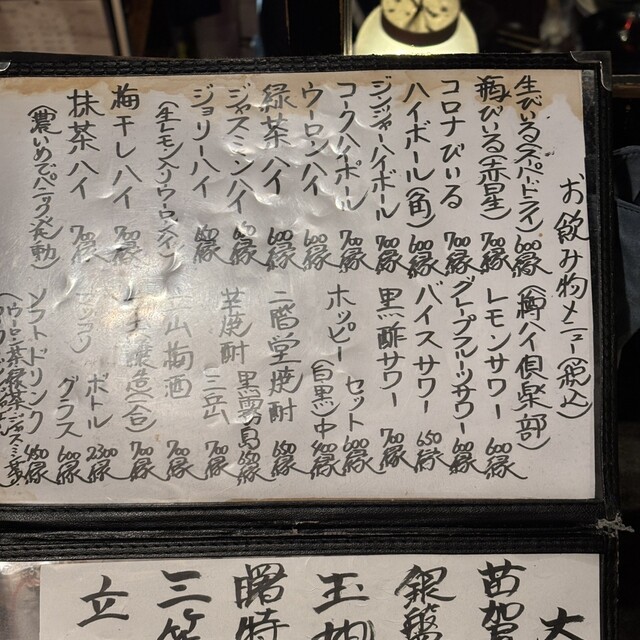 お飲み物メニュー(税込)
生びいる(スーパードライ) 600縁
瓶びいる(赤星) 700縁
コロナびいる 700縁
ハイボール(角) 600縁
ジンジャーハイボール 700縁
コークハイボール 700縁
ウーロンハイ 600縁
緑茶ハイ 600縁
ジャスミンハイ 600縁
ジョリーハイ 600縁
(生レモンソウ・ロンハイ)
梅干しハイ 700縁
抹茶ハイ 700縁
(濃いめでパニック発動)
(樽ハイ倶楽部)
レモンサワー 600縁
グレープフルーツサワー 600縁
バイスサワー 650縁
黒酢サワー 700縁
ホッピーセット 600縁
(白黒)中 400縁
二階堂焼酎 650縁
芋焼酎 黒霧島 650縁
三岳 700縁
梅酒 700縁
(一合) 700縁
ボトル 2300縁
グラス 600縁
ソフトドリンク 450縁
苗賀
銀盤
玉
曙 特
三
立